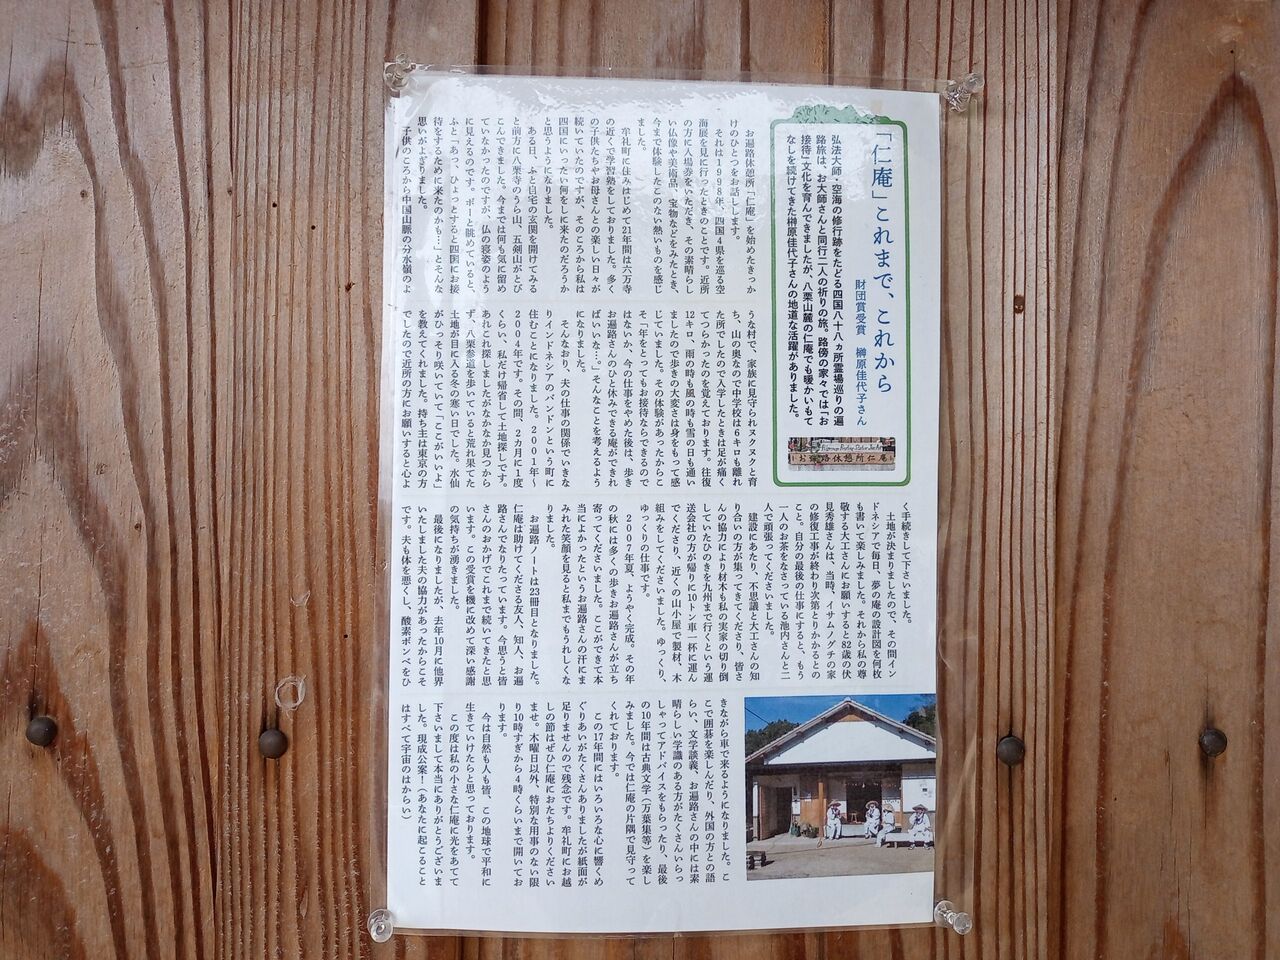 「仁庵」これまで、これから
財団賞受賞　榊原佳代子さん
弘法大師・空海の修行跡をたどる四国八十八ヵ所霊場巡りの遍
路旅は、お大師さんと同行二人の祈りの旅。路傍の家々では「お
接待」文化を育んできましたが、八栗山麓の仁庵でも暖かいもて
なしを続けてきた榊原佳代子さんの地道な活躍がありました。
お遍路休憩所仁庵
お遍路休憩所「仁庵」を始めたきっか
けのひとつをお話しします。
それは1998年、四国4県を巡る空
海展を見に行ったときのことです。近所
の方に入場券をいただき、その素晴らし
い仏像や美術品、宝物などをみたとき、
今まで体験したこのない熱いものを感じ
ました。
牟礼町に住みはじめて21年間は六万寺
の近くで学習塾をしておりました。多く
の子供たちやお母さんとの楽しい日々が
続いていたのですが、そのころから私は
四国にいったい何をしに来たのだろうか
と思うようになりました。
ある日、ふと自宅の玄関を開けてみる
と前方に八栗寺のうら山、五剣山がとび
こんできました。今までは何も気に留め
ていなかったのですが、仏の寝姿のよう
に見えるのです。ボーと眺めていると、
ふと「あっ、ひょっとすると四国にお接
待をするために来たのかも…」とそんな
思いがよぎりました。
子供のころから中国山脈の分水嶺のよ
うな村で、家族に見守られヌクヌクと育
ち、山の奥なので中学校は6キロも離れ
た所でしたので入学したときは足が痛く
てつらかったのを覚えております。往復
12キロ、雨の時も風の時も雪の日も通い
ましたので歩きの大変さは身をもって感
じていました。その体験があったからこ
そ「年をとってもお接待ならできるので
はないか、今の仕事をやめた後は、歩き
お遍路さんのひと休みできる庵ができれ
ばいいな…。」そんなことを考えるよう
になりました。
そんなおり、夫の仕事の関係でいきな
りインドネシアのバンドンという町に
住むことになりました。2001年〜
2004年です。その間、2カ月に1度
くらい、私だけ帰省して土地探しです。
あれこれ探しましたがなかなか見つから
ず、八栗参道を歩いていると荒れ果てた
土地が目に入る冬の寒い日でした。水仙
がひっそり咲いていて「ここがいいよ」
を教えてくれました。持ち主は東京の方
でしたので近所の方にお願いすると心よ
く手続きして下さいました。
土地が決まりましたので、その間イン
ドネシアで毎日、夢の庵の設計図を何枚
も書いて楽しみました。それから私の尊
敬する大工さんにお願いすると82歳の伏
見秀雄さんは、当時、イサムノグチの家
の修復工事が終わり次第とりかかるとの
こと。自分の最後の仕事にすると、もう
一人のお茶をなさっている池内さんと二
人で頑張ってくださいました。
建設にあたり、不思議と大工さんの知
り合いの方が集ってきてくださり、皆さ
んの協力により材木も私の実家の切り倒
していたひのきを九州まで行くという運
送会社の方が帰りに10トン車一杯に運ん
でくださり、近くの山小屋で製材、木
組みをしてくださいました。ゆっくり、
ゆっくりの仕事です。
2007年夏、ようやく完成。その年
の秋には多くの歩きお遍路さんが立ち
寄ってくださいました。ここができて本
当によかったというお遍路さんの汗にま
みれた笑顔を見ると私までもうれしくな
りました。
お遍路ノートは23冊目となりました。
仁庵は助けてくださる友人、知人、お遍
路さんでなりたっています。今思うと皆
さんのおかげでこれまで続いてきたと思
います。この受賞を機に改めて深い感謝
の気持ちが湧きました。
最後になりましたが、去年10月に他界
いたしました夫の協力があったからこそ
です。夫も体を悪くし、酸素ボンベをひ
きながら車で来るようになりました。こ
こで囲碁を楽しんだり、外国の方との語
らい、文学談義、お遍路さんの中には素
晴らしい学識のある方がたくさんいらっ
しゃってアドバイスをもらったり、最後
の10年間は古典文学（万葉集等）を楽し
みました。今では仁庵の片隅で見守って
くれております。
この17年間にはいろいろな心に響くめ
ぐりあいがたくさんありましたが紙面が
足りませんので残念です。牟礼町にお越
しの節はぜひ仁庵におたちよりください
ませ。木曜日以外、特別な用事のない限
り10時すぎから4時くらいまで開いてお
ります。
今は自然も人も皆、この地球で平和に
生きていけたらと思っております。
この度は私の小さな仁庵に光をあてて
下さいまして本当にありがとうございま
した。現成公案！（あなたに起こること
はすべて宇宙のはからい）